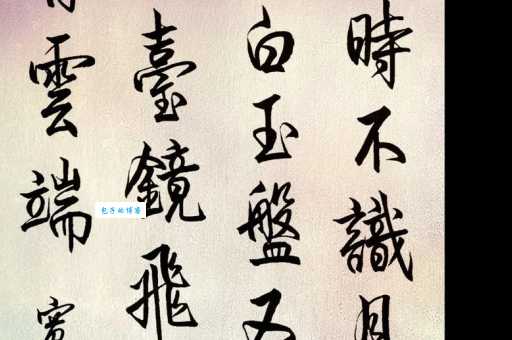 時不識月
白玉盤又
臺鏡飛
雲端
包子的博客